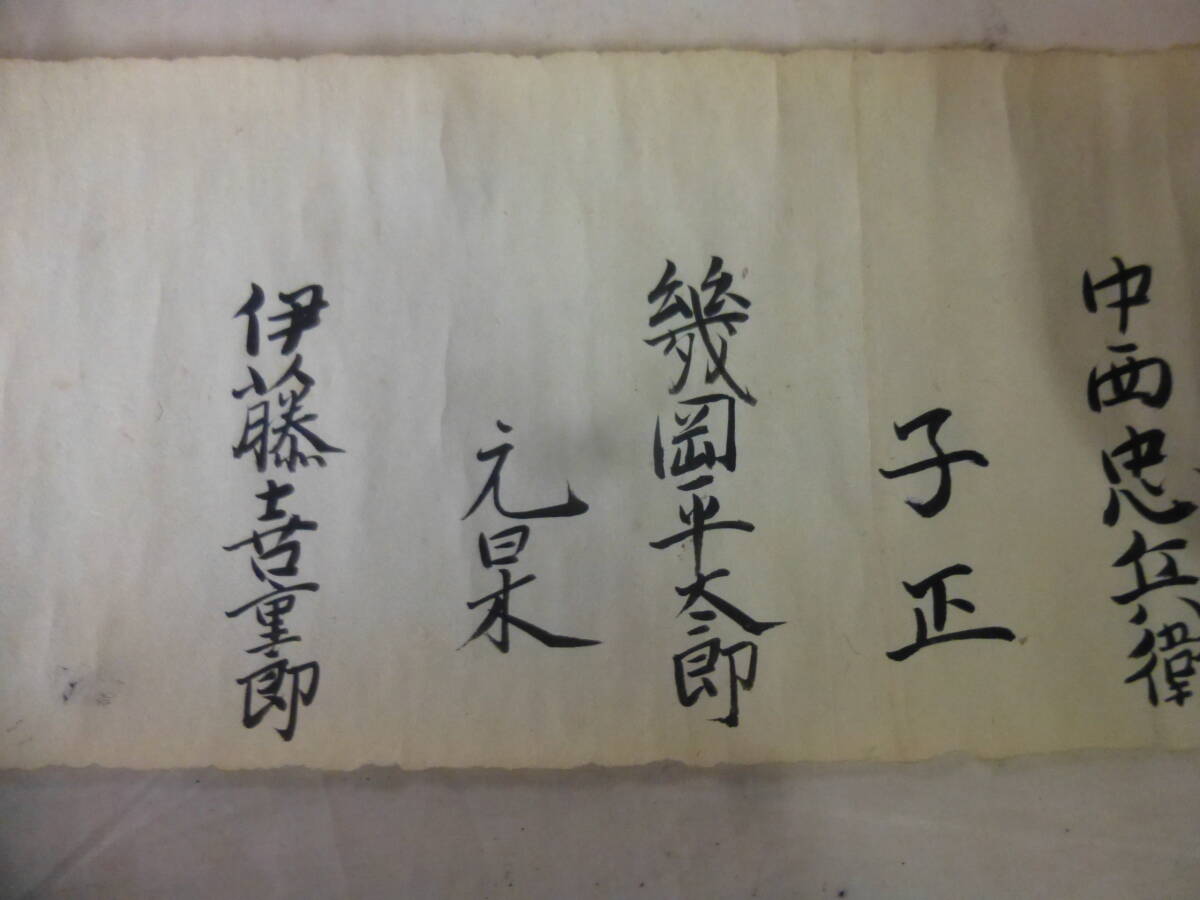 中西忠兵衛
子正
幾岡平太郎
元杲
伊藤喜重郎